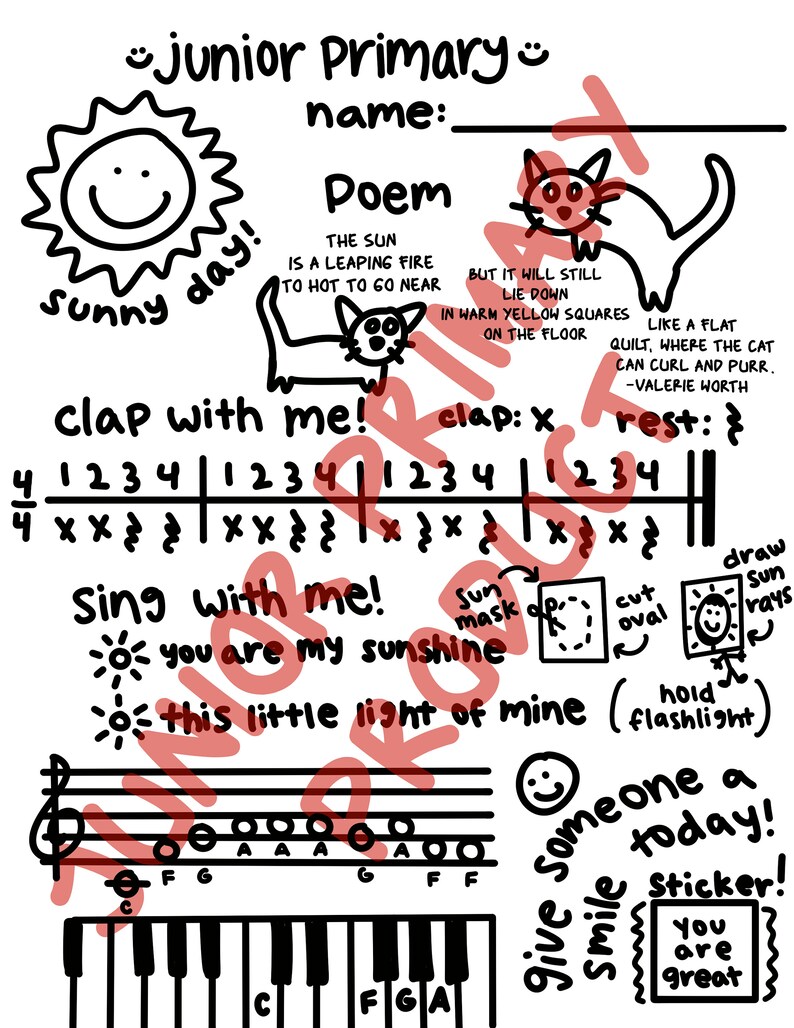 junior primary
name:
sunny day!
Poem
THE SUN
IS A LEAPING FIRE
TO HOT TO GO NEAR
BUT IT WILL STILL
LIE DOWN
IN WARM YELLOW SQUARES
ON THE FLOOR
LIKE A FLAT
QUILT, WHERE THE CAT
CAN CURL AND PURR.
-VALERIE WORTH
clap with me! clap: x rest: 𝄽
4/4 1 2 3 4 1 2 3 4 1 2 3 4 1 2 3 4
x x 𝄽 𝄽 x x 𝄽 𝄽 x 𝄽 x 𝄽 x 𝄽 x 𝄽
Sing with me!
you are my sunshine
this little light of mine
sun
mask
cut
oval
draw
sun
rays
(hold
flashlight)
C F G A A A G A F F
C F G A
give someone a
smile today!
sticker!
you
are
great
JUNIOR PRIMARY
PRODUCT